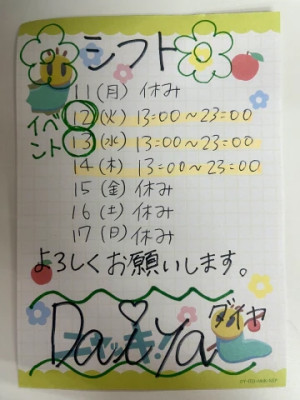 シフト
11(月) 休み
イベント 12(火) 13:00~23:00
13(水) 13:00~23:00
14(木) 13:00~23:00
15(金) 休み
16(土) 休み
17(日) 休み
よろしくお願いします。
ダイヤ
Daiya